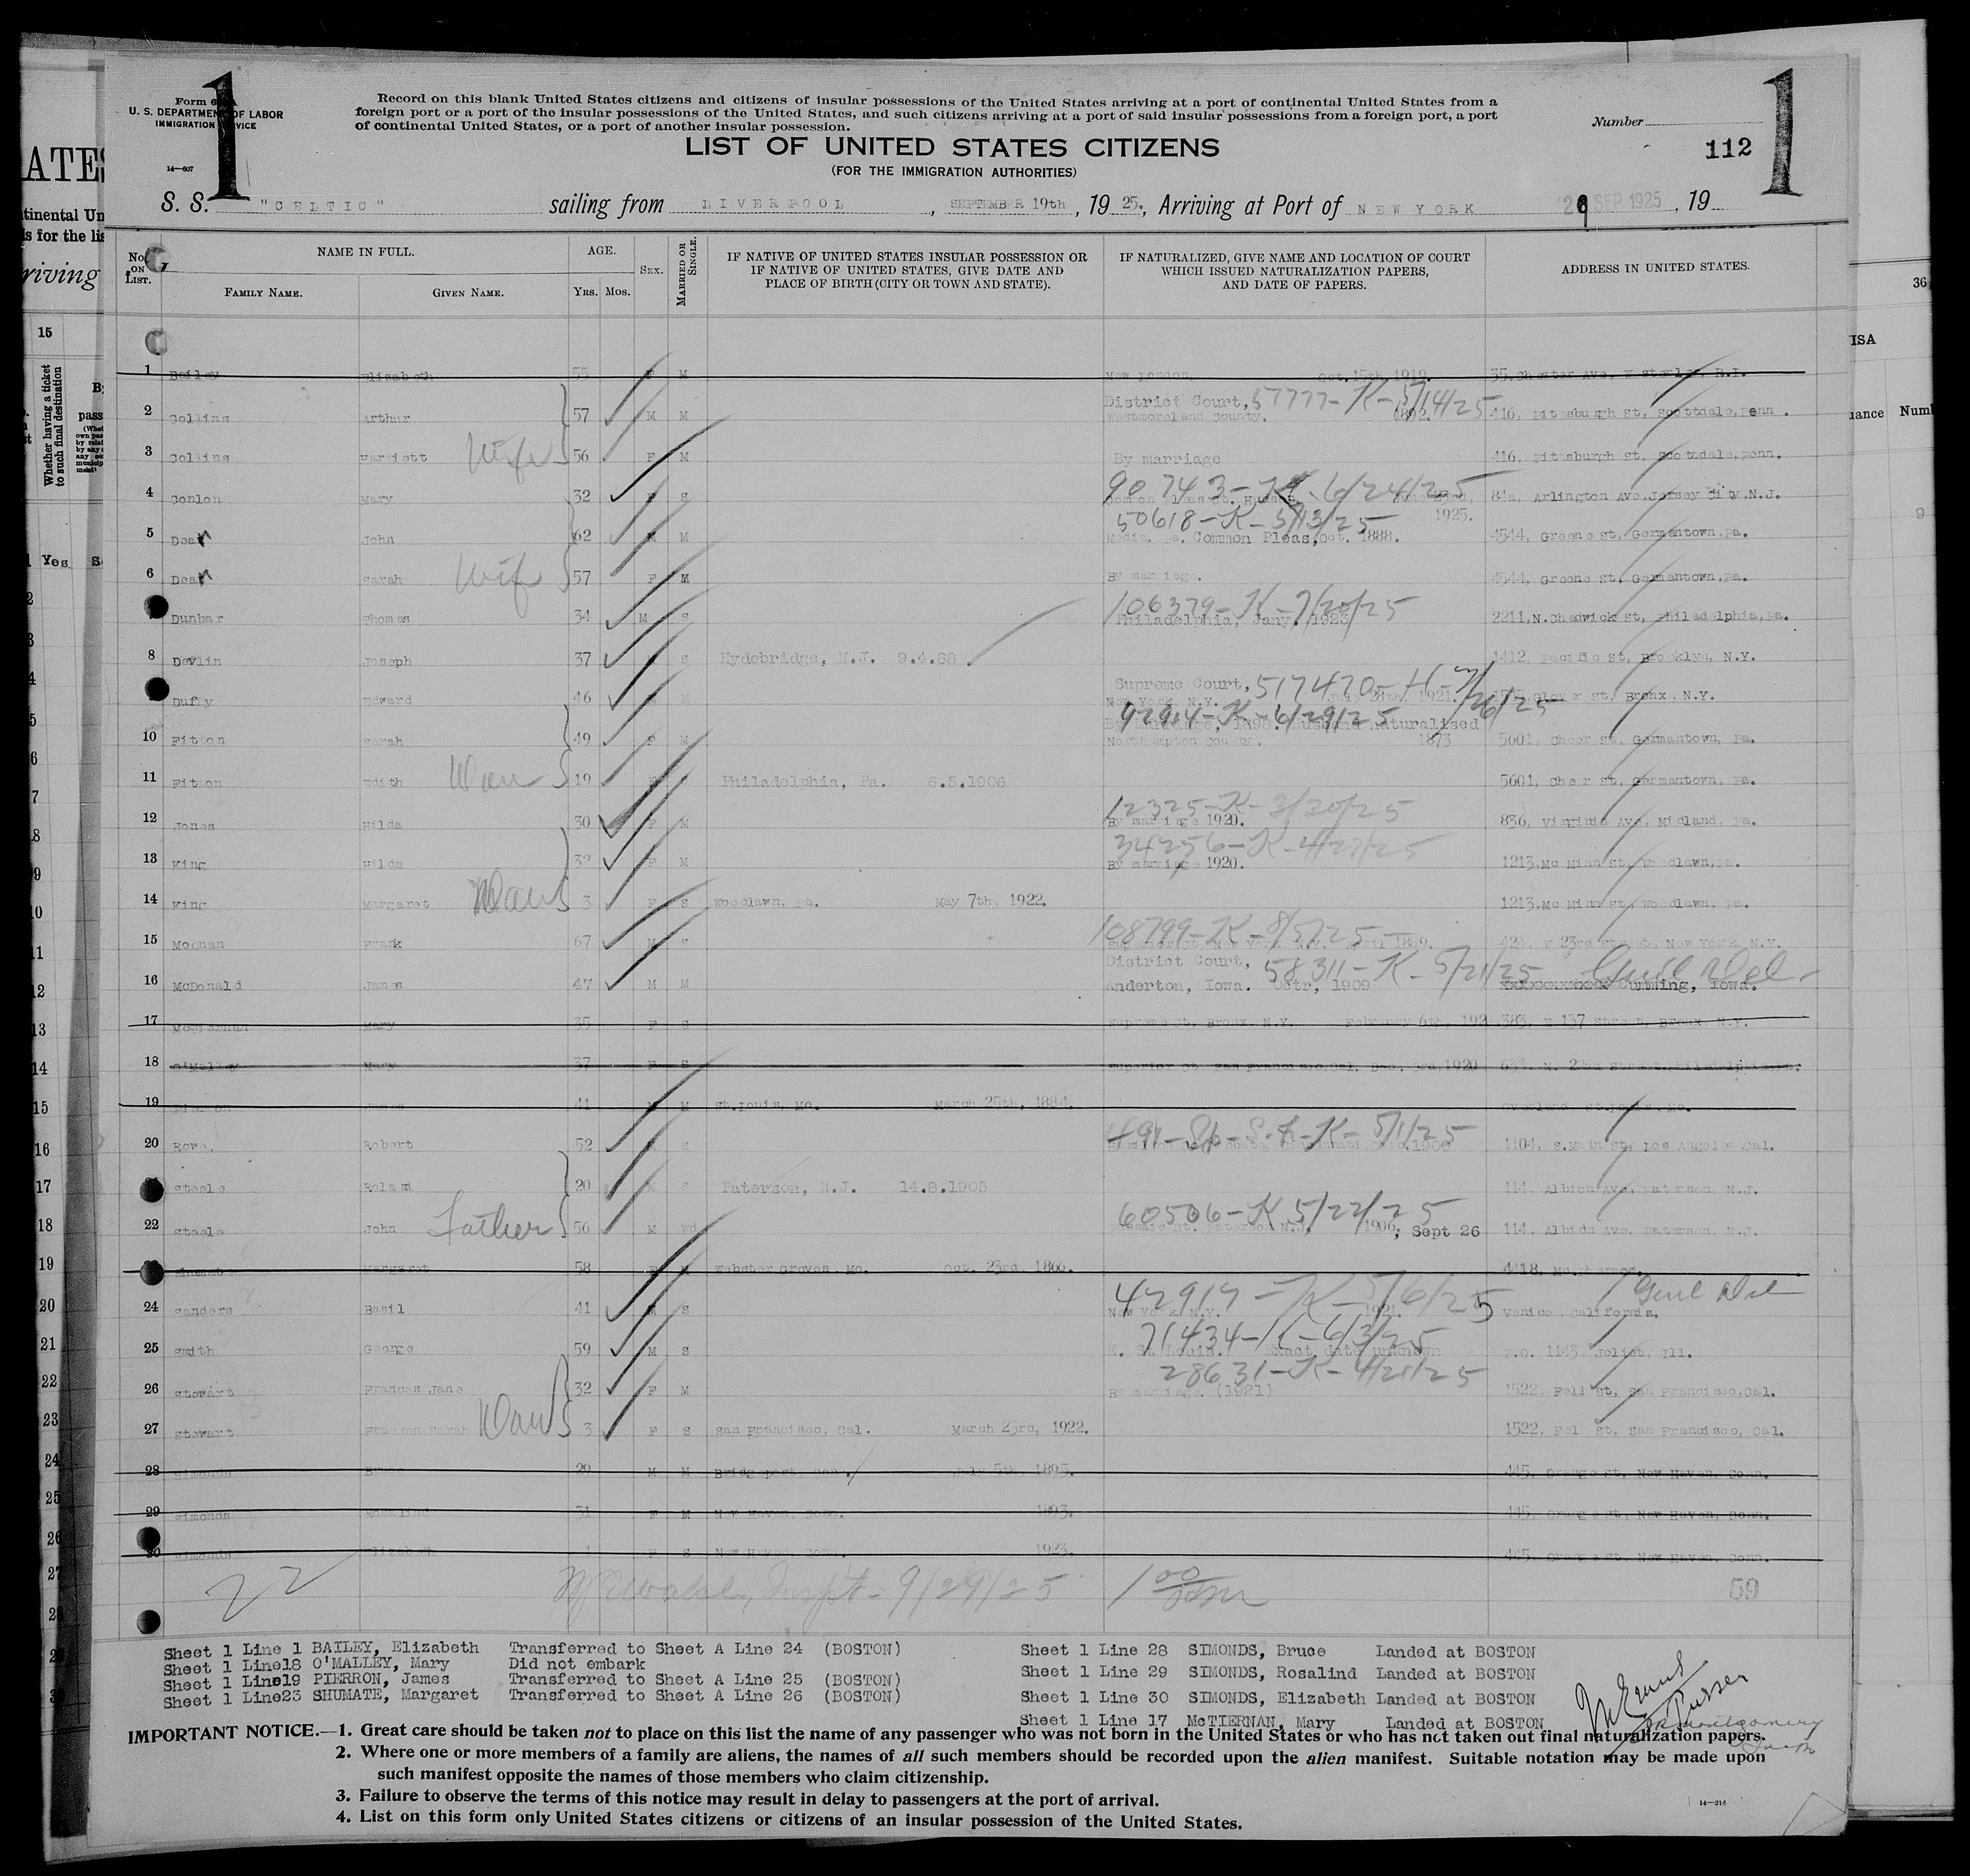 1
1
Form 630 A
U. S. DEPARTMENT OF LABOR
IMMIGRATION SERVICE
14—607
Record on this blank United States citizens and citizens of insular possessions of the United States arriving at a port of continental United States from a
foreign port or a port of the insular possessions of the United States, and such citizens arriving at a port of said insular possessions from a foreign port, a port
of continental United States, or a port of another insular possession.
Number
112
LIST OF UNITED STATES CITIZENS
(FOR THE IMMIGRATION AUTHORITIES)
S. S. "CELTIC" sailing from LIVERPOOL, SEPTEMBER 19th, 1925., Arriving at Port of NEW YORK SEP 1925, 19
No. ON LIST. NAME IN FULL. AGE. SEX. MARRIED OR SINGLE. IF NATIVE OF UNITED STATES INSULAR POSSESSION OR IF NATIVE OF UNITED STATES, GIVE DATE AND PLACE OF BIRTH (CITY OR TOWN AND STATE). IF NATURALIZED, GIVE NAME AND LOCATION OF COURT WHICH ISSUED NATURALIZATION PAPERS, AND DATE OF PAPERS. ADDRESS IN UNITED STATES.
FAMILY NAME. GIVEN NAME. YRS. MOS.
1 Bailey Elizabeth 55 F M New London, Oct. 15th, 1919. 35, Chester Ave, Westerley, R.I.
District Court, 57777-K-5/14/25
2 Collins Arthur 57 M M Westmoreland County. 1892. 416, Pittsburgh St, Scottdale, Penn.
3 Collins Harriett Wife 56 F M By marriage 416, Pittsburgh St, Scottdale, Penn.
90743-K-6/24/25
4 Conlon Mary 32 F S 1925. 84a, Arlington Ave, Jersey City, N.J.
50618-K-5/13/25
5 Dean John 62 M M Media, Pa. Common Pleas, Oct. 1888. 4544, Greene St, Germantown, Pa.
6 Dean Sarah Wife 57 F M By marriage. 4544, Greene St, Germantown, Pa.
106379-K-7/20/25
Dunbar Thomas 34 M S Philadelphia, Jany. 1923 2211, N. Chadwick St, Philadelphia, Pa.
8 Devlin Joseph 37 S Hydebridge, N.J. 9.4.88. 1412, Pacific St, Brooklyn, N.Y.
Supreme Court, 517470-H-7/26/25
Duffy Edward 46 M New York, N.Y. 28th, 1921. Glover St, Bronx, N.Y.
92914-K-6/29/25
By marriage, 1898. Husband naturalised
10 Fitton Sarah 49 F M Northampton County. 1873 5601, Cheer St, Germantown, Pa.
11 Fitton Edith Dau 19 F Philadelphia, Pa. 6.5.1906 5601, Cheer St, Germantown, Pa.
12325-K-3/20/25
12 Jones Hilda 30 F M By marriage 1920. 836, Virginia Ave, Midland, Pa.
34256-K-4/27/25
13 King Hilda 32 F M By marriage 1920. 1213, Mc Minn St, Woodlawn, Pa.
14 King Margaret Dau 3 F S Woodlawn, Pa. May 7th, 1922. 1213, Mc Minn St, Woodlawn, Pa.
108799-K-8/5/25
15 Moonan Frank 67 M S New York, N.Y. 23rd Street, New York, N.Y.
District Court, 58311-K-5/21/25 Genl Del
16 McDonald James 47 M M Anderton, Iowa. Octr, 1909 Cumming, Iowa.
17 McTiernan Mary 35 F S Supreme Ct. Bronx, N.Y. February 6th, 192 383, E 137 Street, Bronx, N.Y.
18 O'Malley Mary 37 F S Superior Ct San Francisco, Cal. Dec. 3rd, 1920 633, N. 22nd Street, Philadelphia
19 Pierron James 41 M M St. Louis, Mo. March 25th, 1884. Overland, St. Louis, Mo.
5/1/25
20 Rowe. Robert 52 S 1104, S. Main St, Los Angeles, Cal.
Steele Roland 20 M S Paterson, N.J. 14.8.1905 114, Albion Ave, Paterson, N.J.
60506-K 5/22/25
22 Steele John Father 56 M Wd Paterson N.J. 1906, Sept 26 114, Albion Ave, Paterson, N.J.
Shumate Margaret 58 F M Webster Groves, Mo. Oct. 23rd, 1866. 4418,
42919-K-5/6/25 Genl Del
24 Sanders Basil 41 M S New York, N.Y. 1921. Venice, California.
71434-K-6/3/25
25 Smith George 59 M S E. St. Louis. Exact date unknown P.O. 1143, Joliet, Ill.
28631-K-4/21/25
26 Stewart Frances Jane 32 F M By marriage. (1921) 1522, Fell St, San Francisco, Cal.
27 Stewart Frances Sarah Dau 3 F S San Francisco, Cal. March 23rd, 1922. 1522, Fell St, San Francisco, Cal.
28 Simonds Bruce 29 M M Bridgeport, Conn. July 5th, 1895. 445, Orange St, New Haven, Conn.
29 Simonds Rosalind 31 F M New Haven, Conn. 1893. 445, Orange St, New Haven, Conn.
30 Simonds Elizabeth F S New Haven, Conn. 1923. 445, Orange St, New Haven, Conn.
22 Inspt-9/29/25 59
Sheet 1 Line 1 BAILEY, Elizabeth Transferred to Sheet A Line 24 (BOSTON)
Sheet 1 Line18 O'MALLEY, Mary Did not embark
Sheet 1 Line19 PIERRON, James Transferred to Sheet A Line 25 (BOSTON)
Sheet 1 Line23 SHUMATE, Margaret Transferred to Sheet A Line 26 (BOSTON)
Sheet 1 Line 28 SIMONDS, Bruce Landed at BOSTON
Sheet 1 Line 29 SIMONDS, Rosalind Landed at BOSTON
Sheet 1 Line 30 SIMONDS, Elizabeth Landed at BOSTON
Sheet 1 Line 17 McTIERNAN, Mary Landed at BOSTON
Purser
IMPORTANT NOTICE.—1. Great care should be taken not to place on this list the name of any passenger who was not born in the United States or who has not taken out final naturalization papers.
2. Where one or more members of a family are aliens, the names of all such members should be recorded upon the alien manifest. Suitable notation may be made upon
such manifest opposite the names of those members who claim citizenship.
3. Failure to observe the terms of this notice may result in delay to passengers at the port of arrival.
4. List on this form only United States citizens or citizens of an insular possession of the United States.
14—216